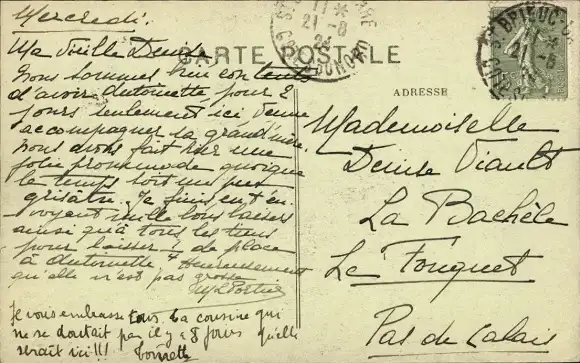 Mercredi.
Ma Vieille Denise
CARTE POSTALE
Nous sommes bien contents
d'avoir Antoinette pour 2
jours seulement ici, venue
accompagner sa grand'mère.
Nous avons fait hier une
jolie promenade quoique
le temps soit un peu
grisâtre. Je finis en t'en
voyant mille bons baisers
ainsi qu'à tous les tiens
pour laisser de place
à Antoinette Heureusement
qu'elle n'est pas grosse
Je vous embrasse tous. La cousine qui
ne se doutait pas il y a 8 jours qu'elle
serait ici!!!
ADRESSE
Mademoiselle
Denise Viault
La Bachèle
Le Touquet
Pas de Calais
21-8